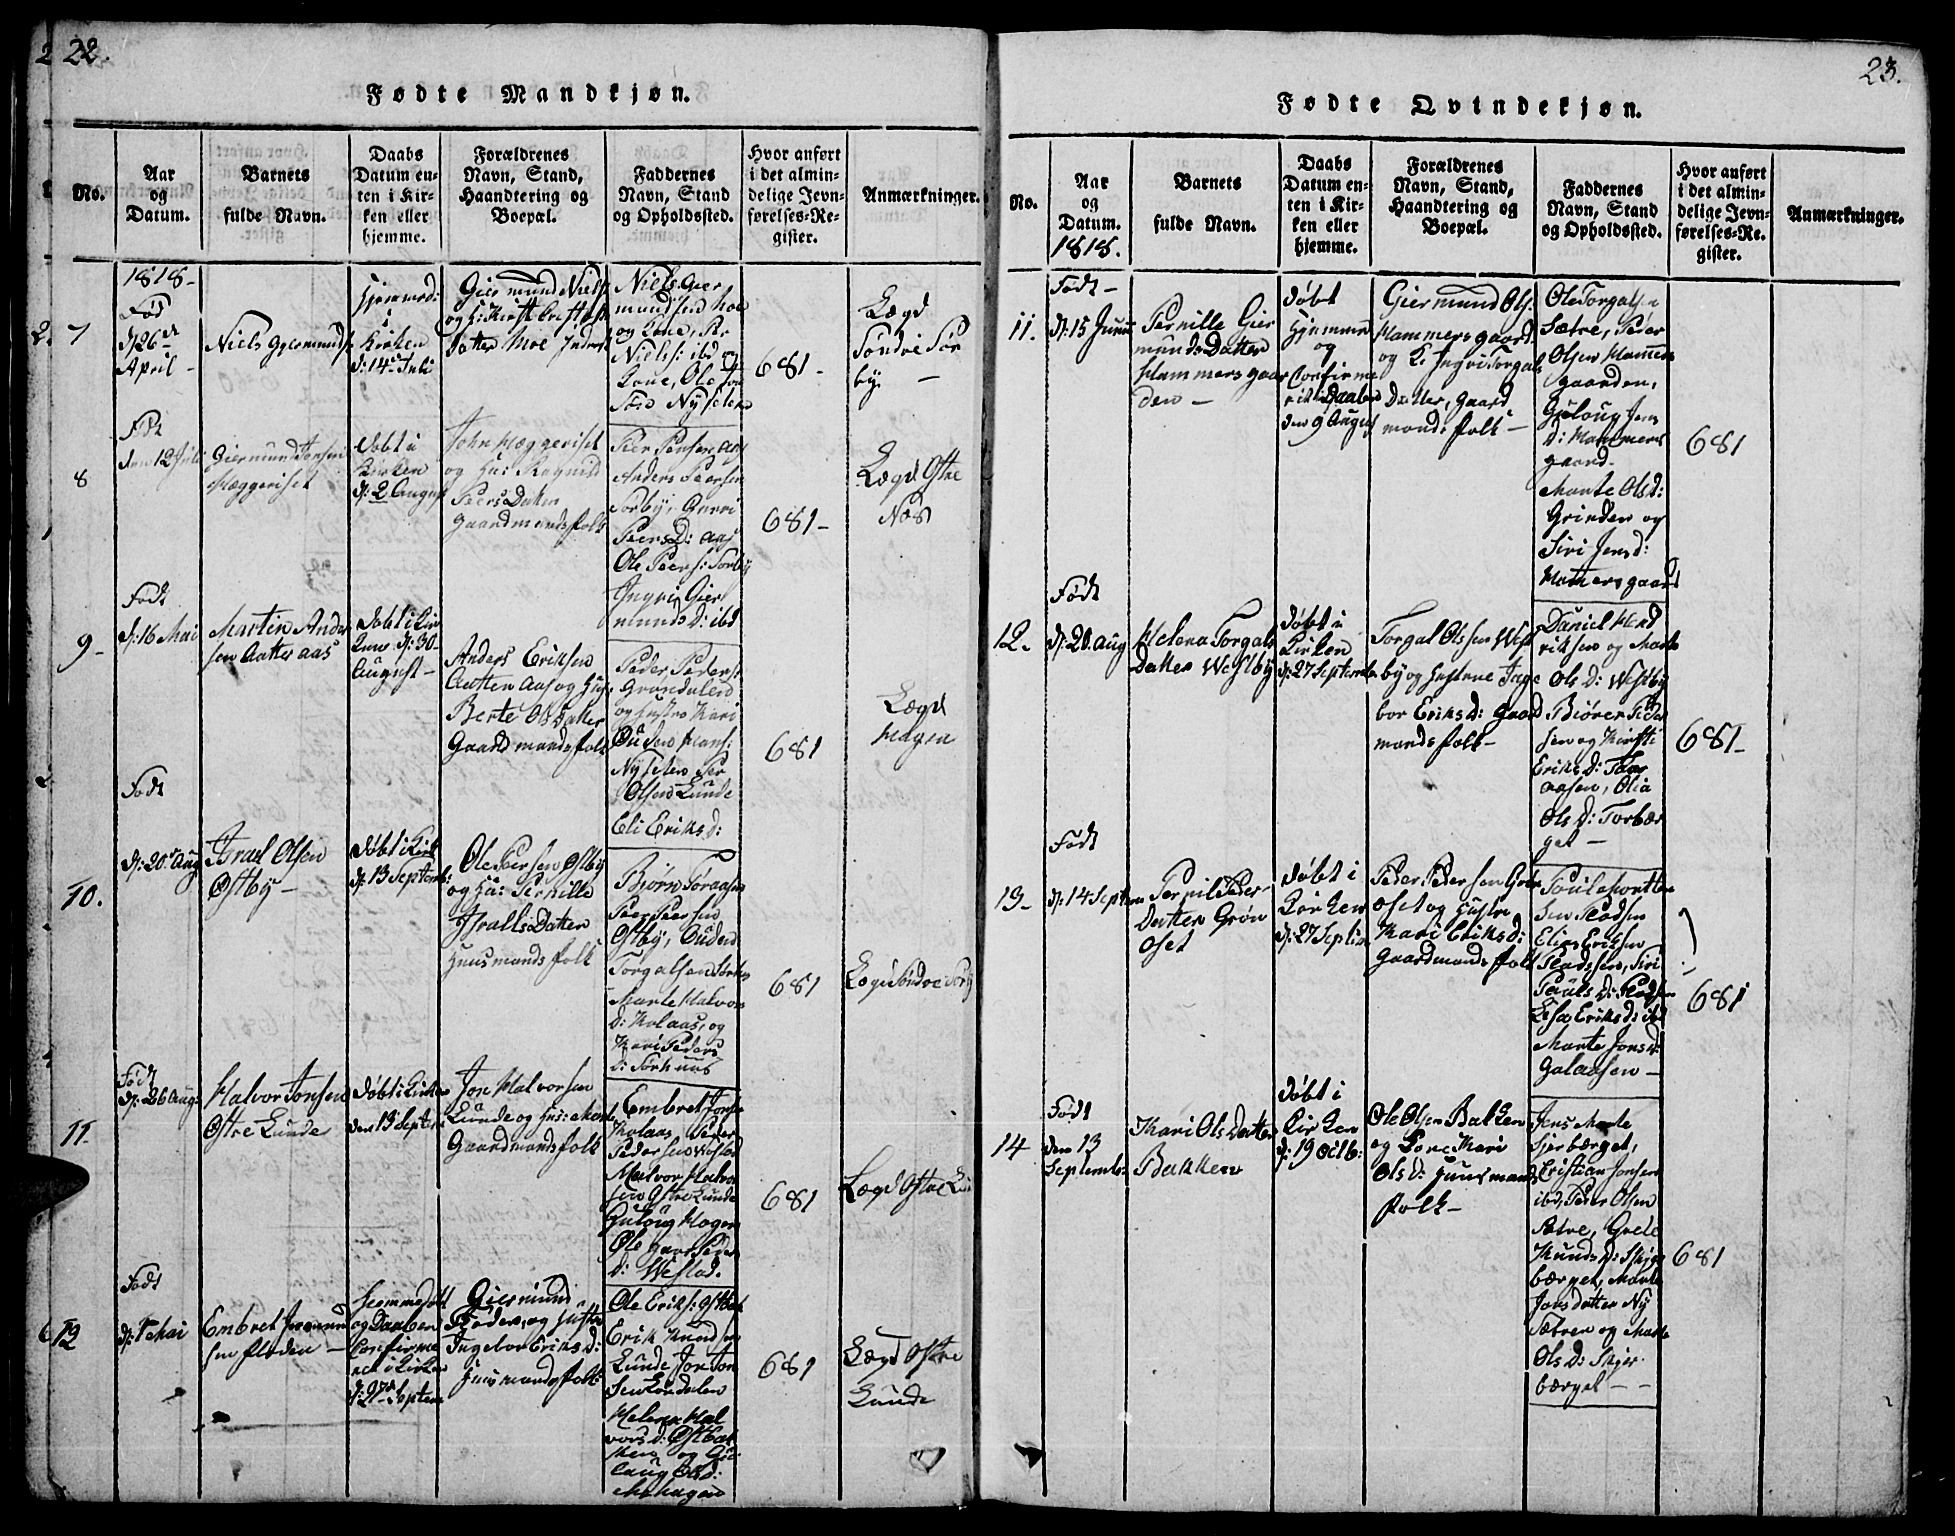 22.
Fødte Mandkjøn.
No.
Aar
og
Datum.
Barnets
fulde Navn.
Daabs
Datum en-
ten i Kir-
ken eller
hjemme.
Forældrenes
Navn, Stand,
Haandtering og
Boepæl.
Faddernes
Navn, Stand
og Opholdssted.
Hvor anført
i det almin-
delige Jevn-
førelses-Re-
gister.
Anmærkninger.
1818-
7
Fød
d: 26de
April -
Niels Gjermunds
Hjemmed:
i
Kirken
d: 14 Juli
Giermund Niels
datter Moe
Niels Gier
mundsen Moe
og Kone, Pr
Niels: ibd og
Kone, Ole
Nyseter
681-
Lægd
Søndre Sør
by -
8
Født
den 12 Juli
Giermund Jonsen
Hæggeriset
Døbt i
Kirken
d: 2 August
John Hæggeriset
og Hu: Ragnild
Peers Datter
Gaardmandsfolk
Peer Peersen Aas
Anders Peersen
Sorby, Gurri
Peers D: Aas
Ole Peers: Sorby
Ingri Gier
munds D: ibd
681-
Lægd Østre
Næs
9-
Født
d: 16 Mai
Martin Ander
sen Aatten aas
Døbt i Kir
ken d: 30-
August-
Anders Eriksen
Aatten Aas og Hus
Berte Ols Datter
Gaardmandsfolk
Peder Peders:
Grøndalen
og Hustro Kari
Ouden Hans:
Nyseter Per
Olsen Lunde
Eli Eriks D:
681
Lægd
Hagen
10.
Født
d: 20de Aug
Israel Olsen
Østby-
Døbt i Kirk
d: 13 Septemb:
Ole Peersen Østby
og Hu: Pernille
Isralls Datter
Huusmandsfolk
Bjørn Toraasen
Peer Peersen
Østby, Ouden
Torgalsen Sørhus
Marte Halvors
D: Kolaas, og
Kari Peders
d: Sørhuus
681
Lægd Søndre Sørby
11-
Født
d: 26 Aug:
Halvor Jonsen
Østre Lunde
Døbt i Kirken
den 13 Septem
Jon Halvorsen
Lunde og Hus: Marte
Gaardmandsfolk
Embret Jons:
Kolaas Peder
Pedersen Westad
Halvor Halvor
sen Østre Lunde
Guloug Hagen
Ole Peder
D: Westad.
681
Lægd Østre Lun
12
Født
d: 1 Mai
Embret Jermun
sen Floden -
Hiemmedøbt
og Daaben
Confirme
ret i Kirken
d: 27de Septem
Giermund
Floden, og Hustro
Ingebor Eriks D:
Huusmandsfolk
Ole Eriks: Østbak
Erik Knuds og
Lunde, Jon Jon
sen Lørdalen
Helena Hal
vors d: Østbak
ken og Gu
laug Ols d:
Mohagen
681
Lægd Østre
Lunde
23.
Fødte Qvindekjøn.
No.
Aar
og
Datum.
1818.
Barnets
fulde Navn.
Daabs
Datum en-
ten i Kir-
ken eller
hjemme.
Forældrenes
Navn, Stand,
Haandtering og
Boepæl.
Faddernes
Navn, Stand
og Opholdssted.
Hvor anført
i det almin-
delige Jevn-
førelses-Re-
gister.
Anmærkninger.
11.
Født-
d: 15 Junii
Pernille Gier
munds Datter
Hammersgaar
den -
Døbt
Hjemme
og
Confirme
ret i Daaben
den 9 August
Giermund Ols:
Hammersgaard
og K: Ingri Torgals
Datter, Gaard
mandsfolk -
Ole Torgalsen
Sætre, Peder
Olsen Hammers
gaarden,
Guloug Jens
d: Hammers
gaard.
Marte Ols d:
Grinden og
Siri Jens d:
Hammersgaard
681
12.
Født
d: 20. Aug
Helena Torgals
Datter Westby
Døbt i
Kirken
d: 27 September
Torgal Olsen West
by og Hustrue Inge
bor Eriks D: Gaard
mandsfolk-
Daniel Hend
riksen og Marte
Ols D: Westby
Biører Peder
sen og Kirsti
Eriks D: Toer
aasen, Olia
Ols D: Torbær
get -
681-
13-
Født
d: 14 Septem
Pernil Peder-
Datter Grøn
oset
Døbt i
Kirken
d: 27 Septem
Peder Pedersen Grøn
oset og Hustro
Kari Eriks D:
Gaardmandsfolk
Poul Mortten
sen Pladsen
Elias Eriksen
Pladsen, Siri
Pouls D: Pladsen
Lisa Eriks D: ibd
Marte Jons D:
Galaasen -
681
14
Født
den 13
Septembr:
Kari Ols Datter
Bakken
Døbt i
Kirken
d: 19 Octb:
Ole Olsen Bakken
og Kone Kari
Ols D: Huusmands
folk-
Jens Marte
Sjerbærget,
Cristian Jonsen
ibd, Peder Olsen
Sætre, Grete
Knuds D: Skjær
bærget, Marte
Jons datter Ny
Sætren og Marte
Ols D: Skjer
bærget - -
681